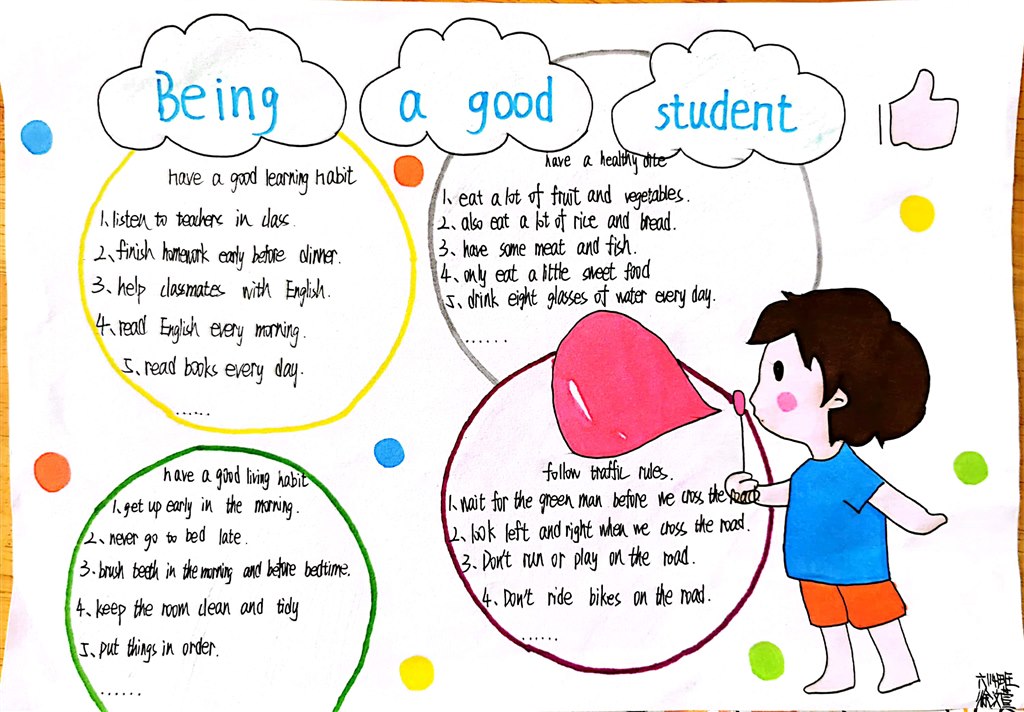 Being a good student
have a good learning habit
1、listen to teachers in class.
2、finish homework early before dinner.
3、help classmates with English.
4、read English every morning.
5、read books every day.
......
have a healthy dite
1、eat a lot of fruit and vegetables.
2、also eat a lot of rice and bread.
3、have some meat and fish.
4、only eat a little sweet food
5、drink eight glasses of water every day.
......
have a good living habit
1、get up early in the morning.
2、never go to bed late.
3、brush teeth in the morning and before bedtime.
4、keep the room clean and tidy
5、put things in order.
......
follow traffic rules.
1、wait for the green man before we cross the road
2、look left and right when we cross the road.
3、Don't run or play on the road.
4、Don't ride bikes on the road.
......